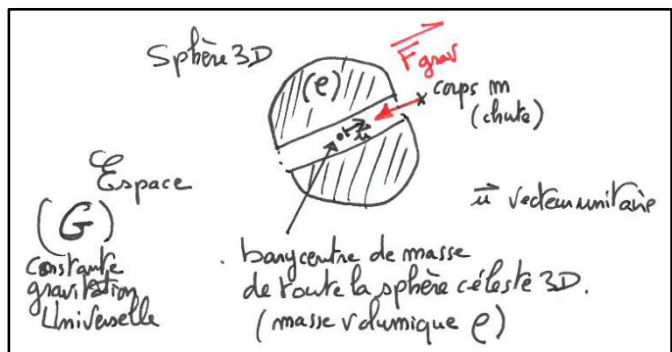 Sphère 3D
F grav
(ρ)
corps m
(chute)
u
Espace
(G)
constante
gravitation
Universelle
u vecteur unitaire
barycentre de masse
de toute la sphère céleste 3D.
(masse volumique ρ)